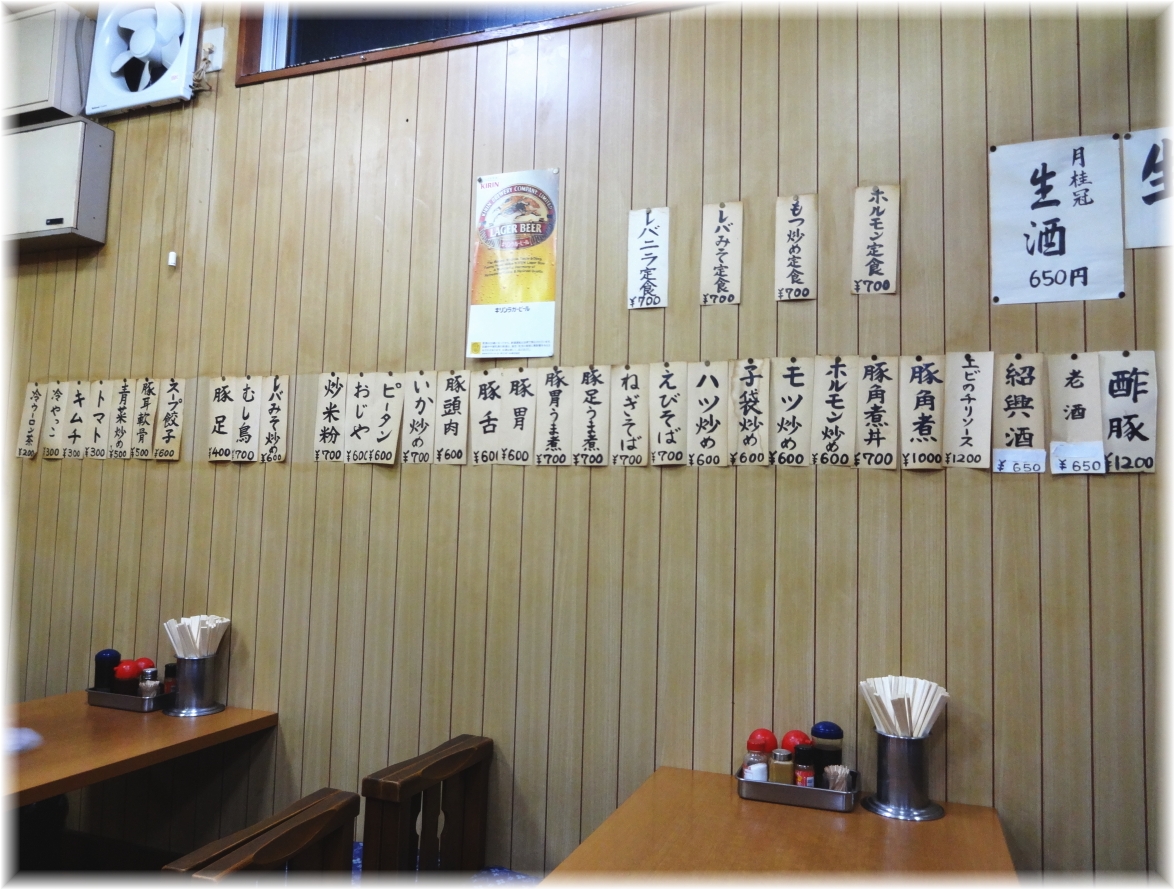 KIRIN
LAGER BEER
キリンラガービール
レバニラ定食
¥700
レバみそ定食
¥700
もつ炒め定食
¥700
ホルモン定食
¥700
月桂冠
生酒
650円
生
冷ウーロン茶
¥200
冷やっこ
¥300
キムチ
¥300
トマト
¥300
青菜炒め
¥500
豚耳軟骨
¥500
スープ餃子
¥600
豚足
¥400
むし鳥
¥700
レバみそ炒め
¥600
炒米粉
¥700
おじや
¥600
ピータン
¥600
いか炒め
¥700
豚頭肉
¥600
豚舌
¥600
豚胃
¥600
豚胃うま煮
¥700
豚足うま煮
¥700
ねぎそば
¥700
えびそば
¥700
ハツ炒め
¥600
子袋炒め
¥600
モツ炒め
¥600
ホルモン炒め
¥600
豚角煮丼
¥700
豚角煮
¥1000
エビのチリソース
¥1200
紹興酒
¥650
老酒
¥650
酢豚
¥1200